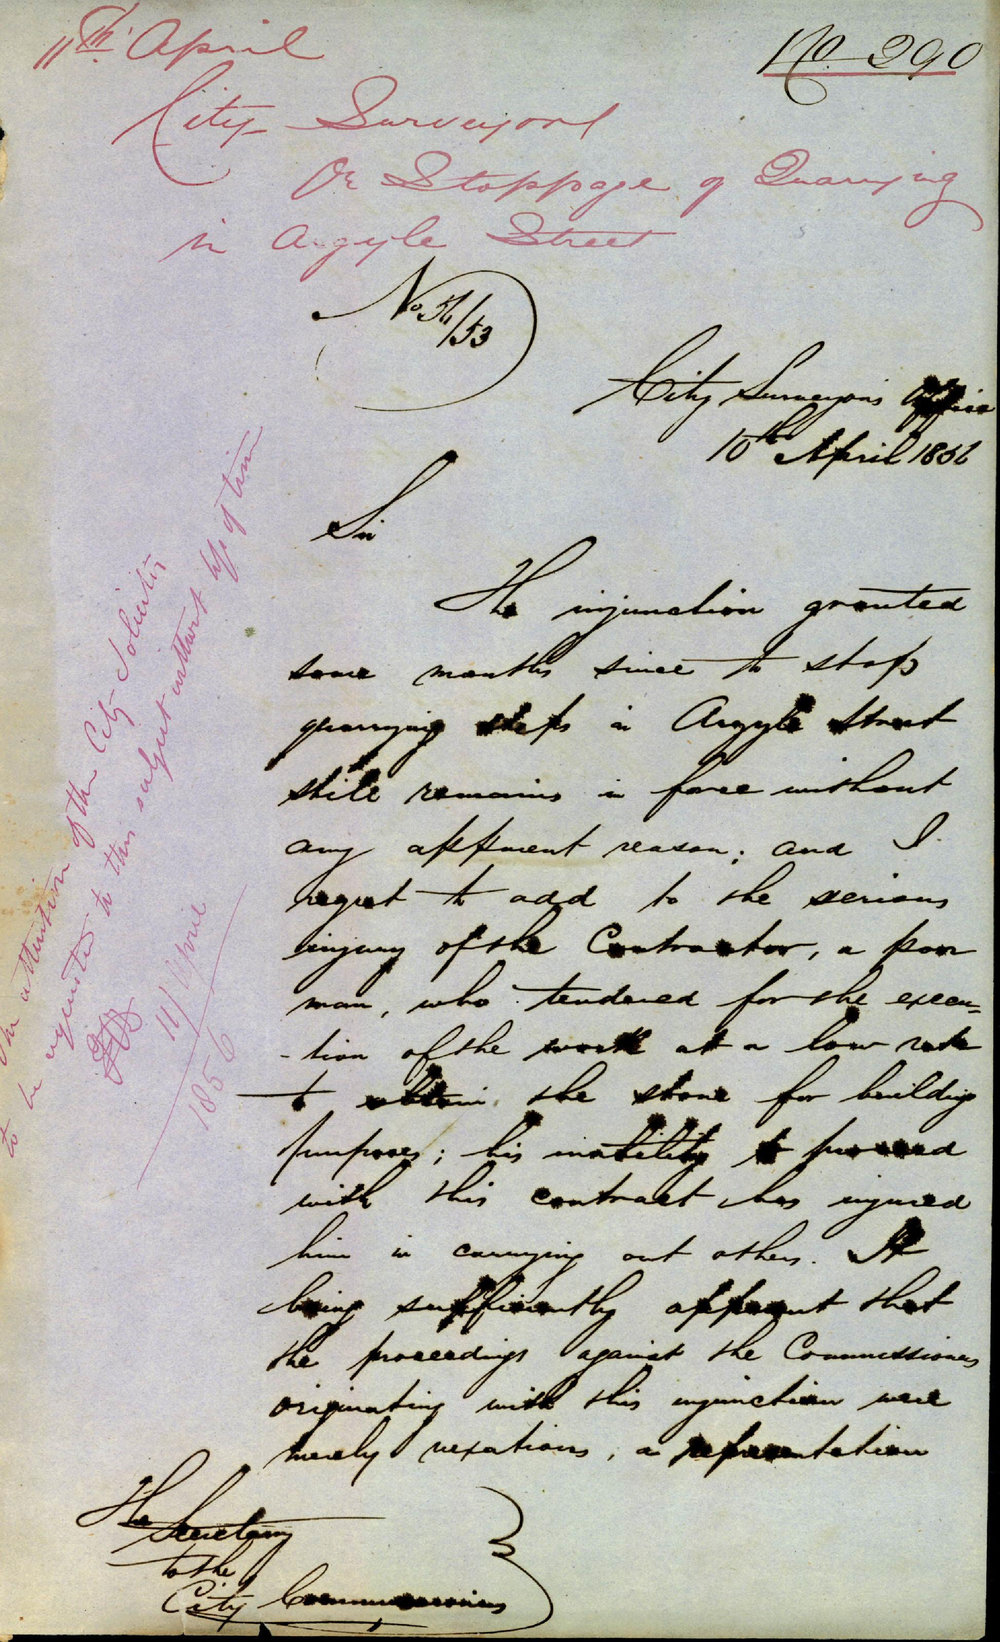 11th. April
No. 290
City Surveyor
Re Stoppage of Quarrying
in Argyle Street
No 56/53
City Surveyors Office
10th April 1856
Sir
The injunction granted
some months since to stop
quarrying steps in Argyle Street
still remains in force without
any apparent reason; and I
regret to add to the serious
injury of the Contractor, a poor
man, who tendered for the execu-
-tion of the work at a low rate
to obtain the stone for building
purposes; his inability to proceed
with this contract has injured
him in carrying out others. It
being sufficiently apparent that
the proceedings against the Commissioners
originating with this injunction were
merely vexatious, a representation
The Secretary
to the
City Commissioners
The attention of the City Solicitor
to be requested to this subject without loss of time
11 April
1856